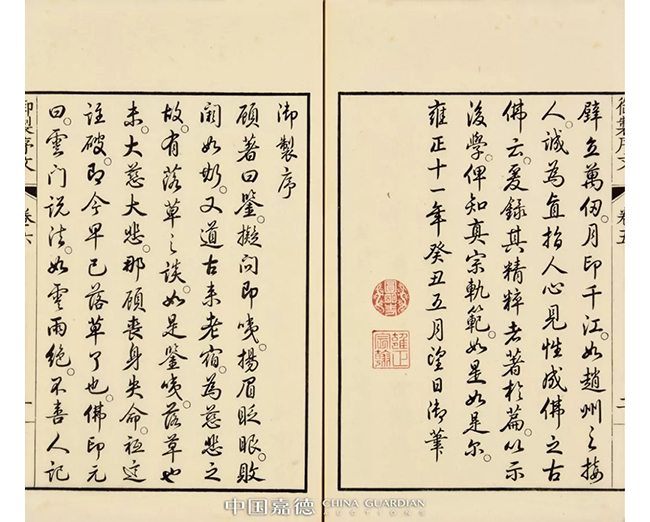 御製序文 卷五 二
壁立萬仞。月印千江。如趙州之接
人。誠為直指人心見性成佛之古
佛云。爰錄其精粹者著於篇。以示
後學。俾知真宗軌範。如是如是尔。
雍正十一年癸丑五月望日御筆
雍正宸翰
御製序
顧著曰鑒。擬問即咦。揚眉眨眼。敗
闕如斯。又道古來老宿。為慈悲之
故。有落草之談。如是鑒咦。落草也
未。大慈大悲。那顧喪身失命。秪這
註破。即今早已落草了也。佛印元
曰。雲门说法。如雲雨絕。不喜人記
御製序文 卷六 一
中国嘉德 CHINA GUARDIAN
AUCTIONS